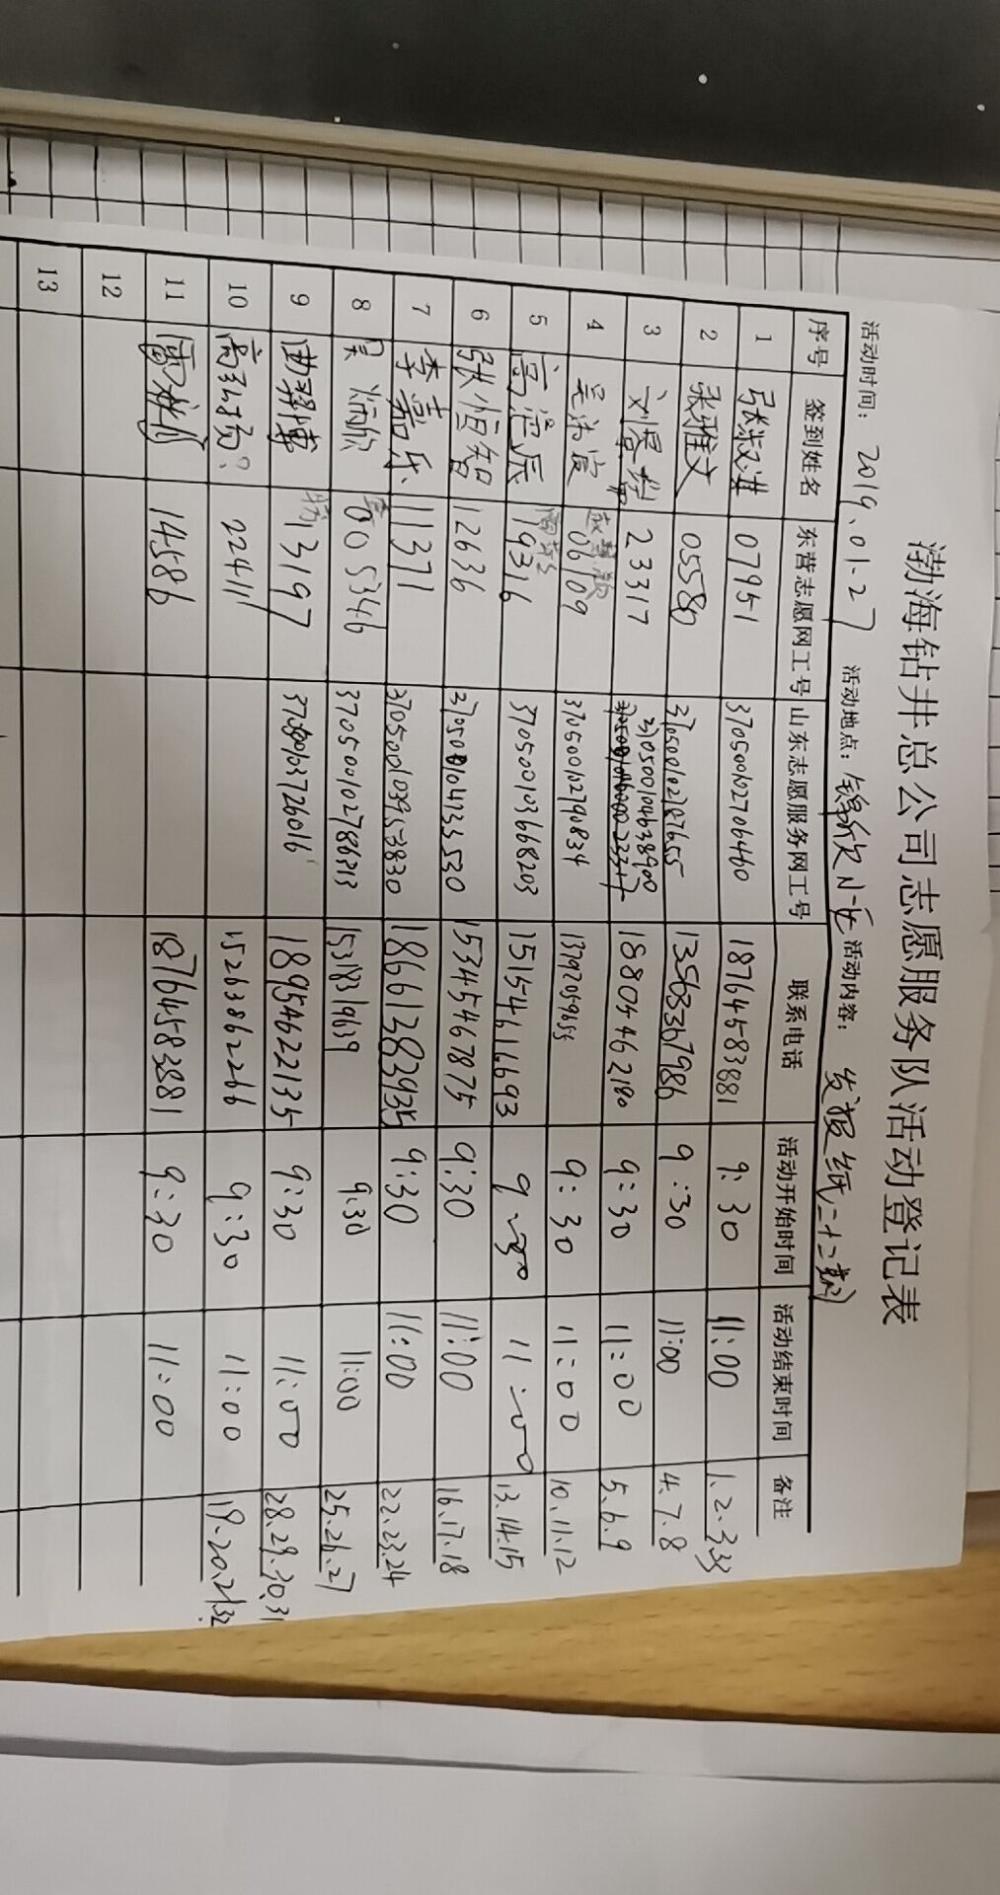 渤海钻井总公司志愿服务队活动登记表
活动时间： 2019.01.27 活动地点：锦欣小区 活动内容： 发报纸二十二期
序号 签到姓名 东营志愿网工号 山东志愿服务网工号 联系电话 活动开始时间 活动结束时间 备注
1 张淑进 07951 370500102706460 18764583881 9:30 11:00 1.2.3.33
2 张雅文 05580 370500102787655 13563367986 9:30 11:00 4.7.8
3 刘 23317 370500104638900 18805462180 9:30 11:00 5.6.9
4 06109 370500102790834 13792059655 9:30 11:00 10.11.12
5 辰 19316 370500103668203 15154616693 9:30 11:00 13.14.15
6 张恒智 12636 3705001042 35530 15345467875 9:30 11:00 16.17.18
7 李嘉乐 11371 3705001039553830 18661383935 9:30 11:00 22.23.24
8 吴炳欣 005346 370500102786313 15318319639 9:30 11:00 25.26.27
9 曲羿博 13197 370500103726016 18954622135 9:30 11:00 28.29.30.31
10 高弘扬? 22411 15263862266 9:30 11:00 19.20.21.32
11 14586 18764583881 9:30 11:00
12
13